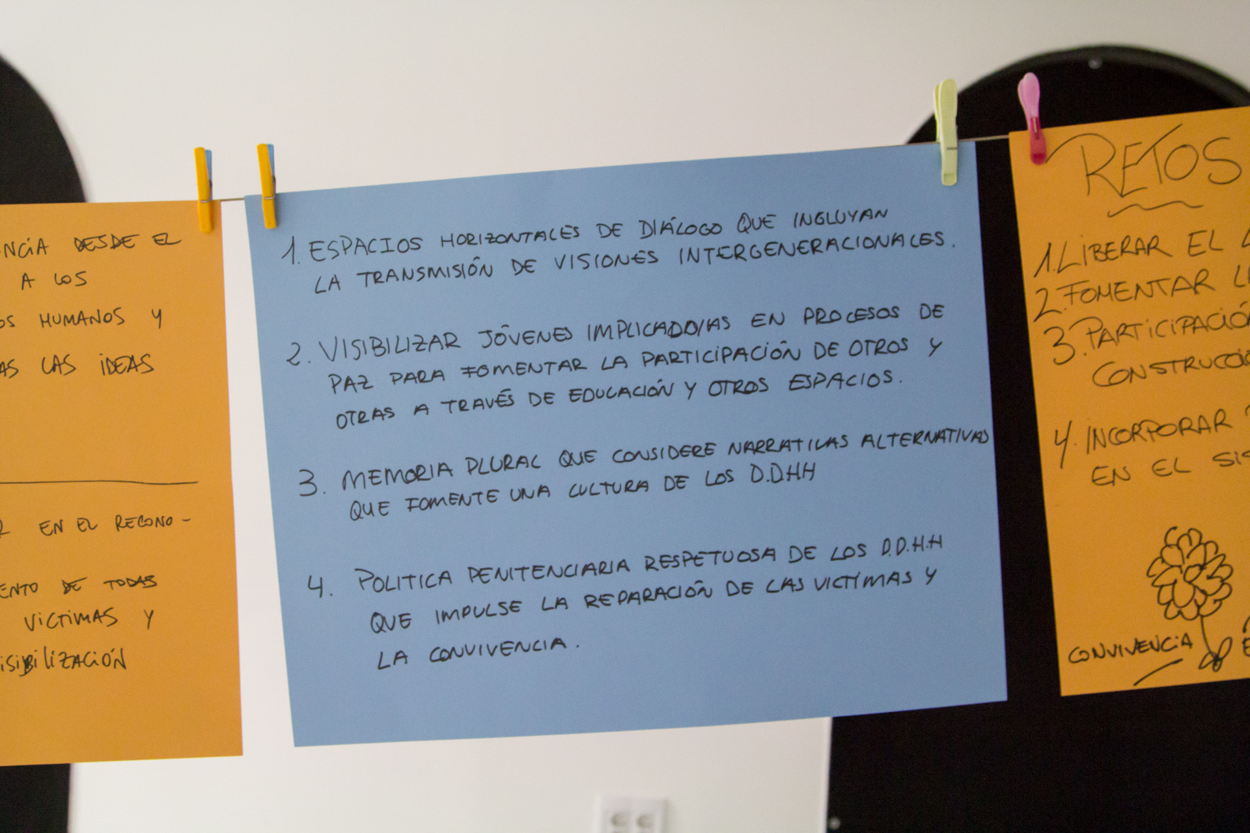 NCIA DESDE EL
A LOS
OS HUMANOS Y
AS LAS IDEAS
R EN EL RECONO-
ENTO DE TODAS
VICTIMAS Y
ISIBILIZACIÓN
1. ESPACIOS HORIZONTALES DE DIÁLOGO QUE INCLUYAN
LA TRANSMISIÓN DE VISIONES INTERGENERACIONALES.
2. VISIBILIZAR JÓVENES IMPLICADO/AS EN PROCESOS DE
PAZ PARA FOMENTAR LA PARTICIPACIÓN DE OTROS Y
OTRAS A TRAVÉS DE EDUCACIÓN Y OTROS ESPACIOS.
3. MEMORIA PLURAL QUE CONSIDERE NARRATIVAS ALTERNATIVAS
QUE FOMENTE UNA CULTURA DE LOS D.DHH
4. POLITICA PENITENCIARIA RESPETUOSA DE LOS D.D.H.H
QUE IMPULSE LA REPARACIÓN DE LAS VICTÍMAS Y
LA CONVIVENCIA.
RETOS
1. LIBERAR EL
2. FOMENTAR L
3. PARTICIPACIÓ
CONSTRUCCI
4. INCORPORAR
EN EL SIS
CONVIVENCIA